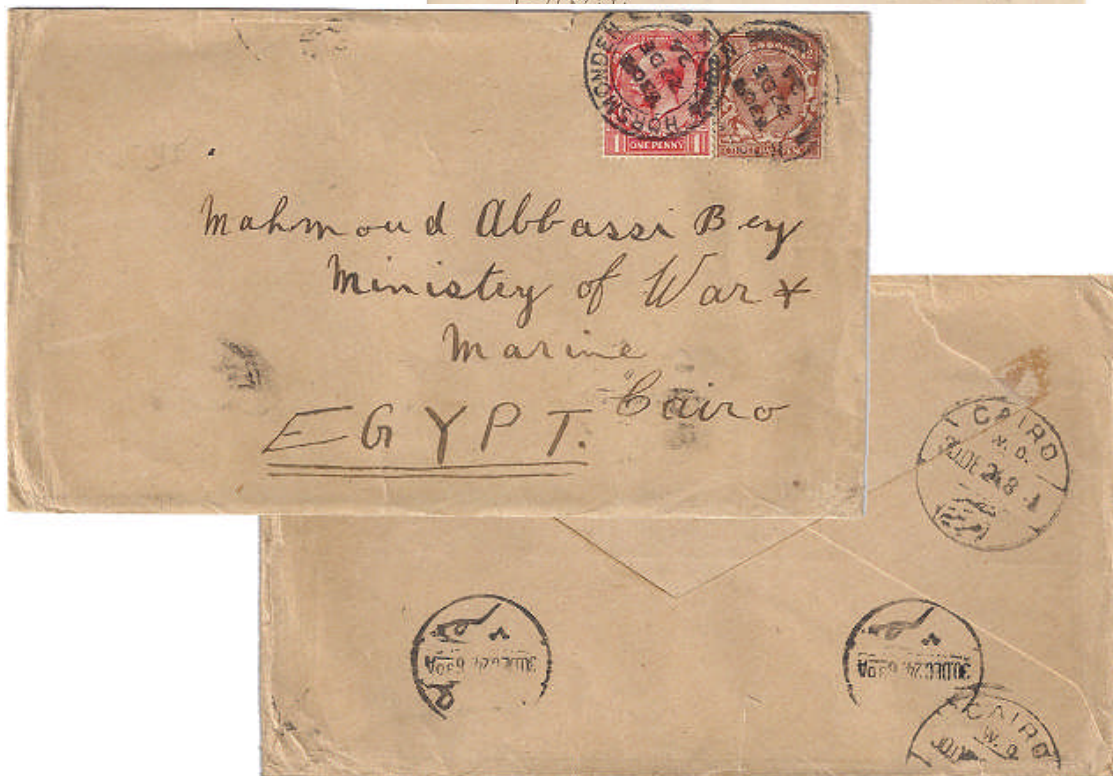 HORSMONDEN
1 ONE PENNY 1
Mahmoud Abbassi Bey
Ministry of War &
Marine
Cairo
EGYPT.
CAIRO
W. D.
30 DE 24 8
30 DEC 24. 630A
30 DEC 24. 630A
CAIRO
W. D.